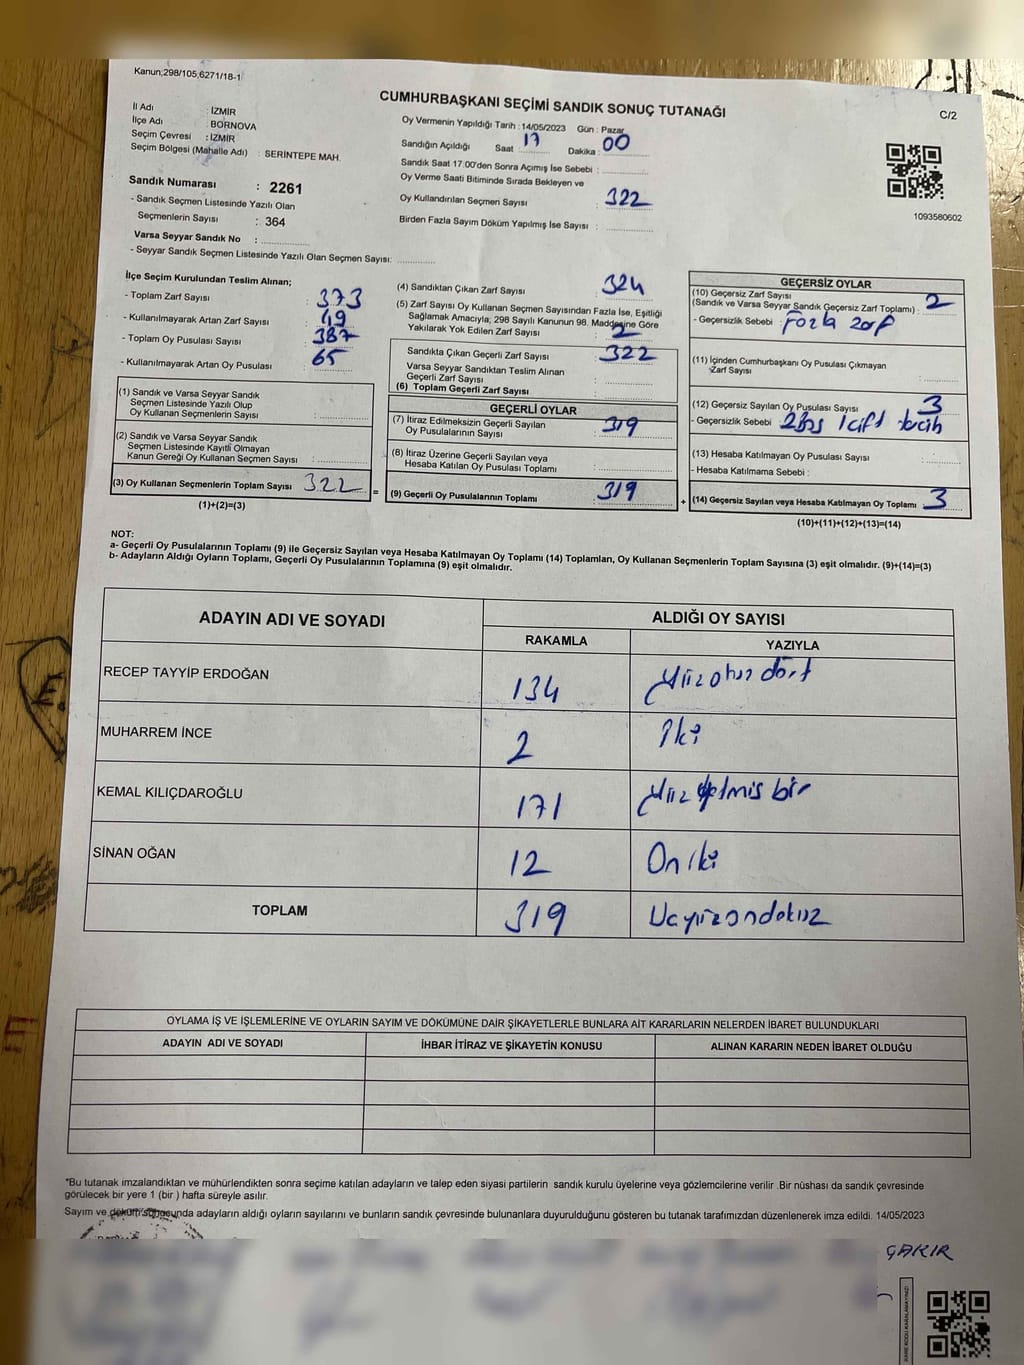 Kanun;298/105,6271/18-1
CUMHURBAŞKANI SEÇİMİ SANDIK SONUÇ TUTANAĞI
C/2
İl Adı : İZMİR
İlçe Adı : BORNOVA
Seçim Çevresi : İZMİR
Seçim Bölgesi (Mahalle Adı) : SERİNTEPE MAH.
Sandık Numarası : 2261
- Sandık Seçmen Listesinde Yazılı Olan
Seçmenlerin Sayısı : 364
Varsa Seyyar Sandık No :
- Seyyar Sandık Seçmen Listesinde Yazılı Olan Seçmen Sayısı:
Oy Vermenin Yapıldığı Tarih : 14/05/2023 Gün : Pazar
Sandığın Açıldığı Saat 17 Dakika : 00
Sandık Saat 17:00'den Sonra Açımış İse Sebebi :
Oy Verme Saati Bitiminde Sırada Bekleyen ve
Oy Kullandırılan Seçmen Sayısı : 322
Birden Fazla Sayım Döküm Yapılmış İse Sayısı :
1093580602
İlçe Seçim Kurulundan Teslim Alınan;
- Toplam Zarf Sayısı : 373
- Kullanılmayarak Artan Zarf Sayısı : 49
- Toplam Oy Pusulası Sayısı : 387
- Kullanılmayarak Artan Oy Pusulası : 65
(1) Sandık ve Varsa Seyyar Sandık
Seçmen Listesinde Yazılı Olup
Oy Kullanan Seçmenlerin Sayısı :
(2) Sandık ve Varsa Seyyar Sandık
Seçmen Listesinde Kayıtlı Olmayan
Kanun Gereği Oy Kullanan Seçmen Sayısı :
(3) Oy Kullanan Seçmenlerin Toplam Sayısı 322
(1)+(2)=(3)
=
(4) Sandıktan Çıkan Zarf Sayısı : 324
(5) Zarf Sayısı Oy Kullanan Seçmen Sayısından Fazla İse, Eşitliği
Sağlamak Amacıyla; 298 Sayılı Kanunun 98. Maddesine Göre
Yakılarak Yok Edilen Zarf Sayısı : 2
Sandıkta Çıkan Geçerli Zarf Sayısı : 322
Varsa Seyyar Sandıktan Teslim Alınan
Geçerli Zarf Sayısı :
(6) Toplam Geçerli Zarf Sayısı :
GEÇERLİ OYLAR
(7) İtiraz Edilmeksizin Geçerli Sayılan
Oy Pusulalarının Sayısı : 319
(8) İtiraz Üzerine Geçerli Sayılan veya
Hesaba Katılan Oy Pusulası Toplamı :
(9) Geçerli Oy Pusulalarının Toplamı : 319
+
GEÇERSİZ OYLAR
(10) Geçersiz Zarf Sayısı
(Sandık ve Varsa Seyyar Sandık Geçersiz Zarf Toplamı) : 2
- Geçersizlik Sebebi : Fazla zarf
(11) İçinden Cumhurbaşkanı Oy Pusulası Çıkmayan
Zarf Sayısı :
(12) Geçersiz Sayılan Oy Pusulası Sayısı : 3
- Geçersizlik Sebebi : 2 boş 1 çift tercih
(13) Hesaba Katılmayan Oy Pusulası Sayısı :
- Hesaba Katılmama Sebebi :
(14) Geçersiz Sayılan veya Hesaba Katılmayan Oy Toplamı : 3
(10)+(11)+(12)+(13)=(14)
NOT:
a- Geçerli Oy Pusulalarının Toplamı (9) ile Geçersiz Sayılan veya Hesaba Katılmayan Oy Toplamı (14) Toplamları, Oy Kullanan Seçmenlerin Toplam Sayısına (3) eşit olmalıdır. (9)+(14)=(3)
b- Adayların Aldığı Oyların Toplamı, Geçerli Oy Pusulalarının Toplamına (9) eşit olmalıdır.
ADAYIN ADI VE SOYADI ALDIĞI OY SAYISI
RAKAMLA YAZIYLA
RECEP TAYYİP ERDOĞAN 134 Yüzotuz dört
MUHARREM İNCE 2 İki
KEMAL KILIÇDAROĞLU 171 Yüz yetmiş bir
SİNAN OĞAN 12 On iki
TOPLAM 319 Üçyüzondokuz
OYLAMA İŞ VE İŞLEMLERİNE VE OYLARIN SAYIM VE DÖKÜMÜNE DAİR ŞİKAYETLERLE BUNLARA AİT KARARLARIN NELERDEN İBARET BULUNDUKLARI
ADAYIN ADI VE SOYADI İHBAR İTİRAZ VE ŞİKAYETİN KONUSU ALINAN KARARIN NEDEN İBARET OLDUĞU
"Bu tutanak imzalandıktan ve mühürlendikten sonra seçime katılan adayların ve talep eden siyasi partilerin sandık kurulu üyelerine veya gözlemcilerine verilir .Bir nüshası da sandık çevresinde
görülecek bir yere 1 (bir ) hafta süreyle asılır.
Sayım ve döküm sonucunda adayların aldığı oyların sayılarını ve bunların sandık çevresinde bulunanlara duyurulduğunu gösteren bu tutanak tarafımızdan düzenlenerek imza edildi. 14/05/2023
ÇAKIR